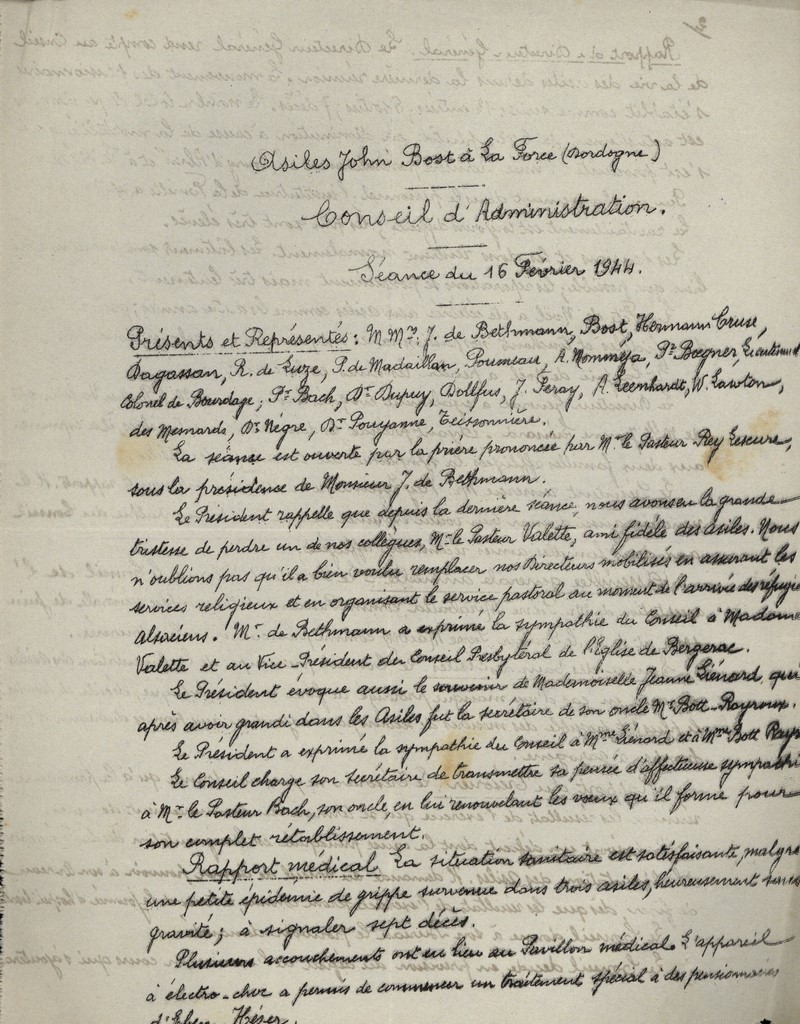 Asiles John Bost à La Force (Dordogne)
Conseil d'Administration.
Séance du 16 Février 1944.
Présents et Représentés: M.Mrs. J. de Bethmann, Bost, Hermann Cruse,
Dagassan, R. de Luze, P. de Madaillan, Poumeau, A. Momméja, Pr Boegner, Lieutenant
Colonel de Bourelage; Pr Bach, Dr Dupuy, Dollfus, J. Feray, A. Leenhardt, W. Lawton,
des Mesnards, Dr Nègre, Dr Pouyanne, Teissonnière.
La séance est ouverte par la prière prononcée par Mr le Pasteur Rey Lescure,
sous la présidence de Monsieur J. de Bethmann.
Le Président rappelle que depuis la dernière séance, nous avons eu la grande
tristesse de perdre un de nos collègues, Mr le Pasteur Valette, ami fidèle des asiles. Nous
n'oublions pas qu'il a bien voulu remplacer nos Directeurs mobilisés en assurant les
services religieux et en organisant le service pastoral au moment de l'arrivée des réfugiés
alsaciens. Mr. de Bethmann a exprimé la sympathie du Conseil à Madame
Valette et au Vice-Président du Conseil Presbytéral de l'Eglise de Bergerac.
Le Président évoque aussi le souvenir de Mademoiselle Jeanne Liénard, qui
après avoir grandi dans les Asiles fut la secrétaire de son oncle Mr Bott-Rayroux.
Le Président a exprimé la sympathie du Conseil à Mme Liénard et à Mme Bott Rayr
Le Conseil charge son secrétaire de transmettre sa pensée d'affectueuse sympathi
à Mr le Pasteur Bach, son oncle, en lui renouvelant les vœux qu'il forme pour
son complet rétablissement.
Rapport médical La situation sanitaire est satisfaisante, malgré
une petite épidémie de grippe survenue dans trois asiles, heureusement sans
gravité; à signaler sept décès.
Plusieurs accouchements ont eu lieu au Pavillon médical L'appareil
à électro-choc a permis de commencer un traitement spécial à des pensionnaires
d'Eben-Hézer.